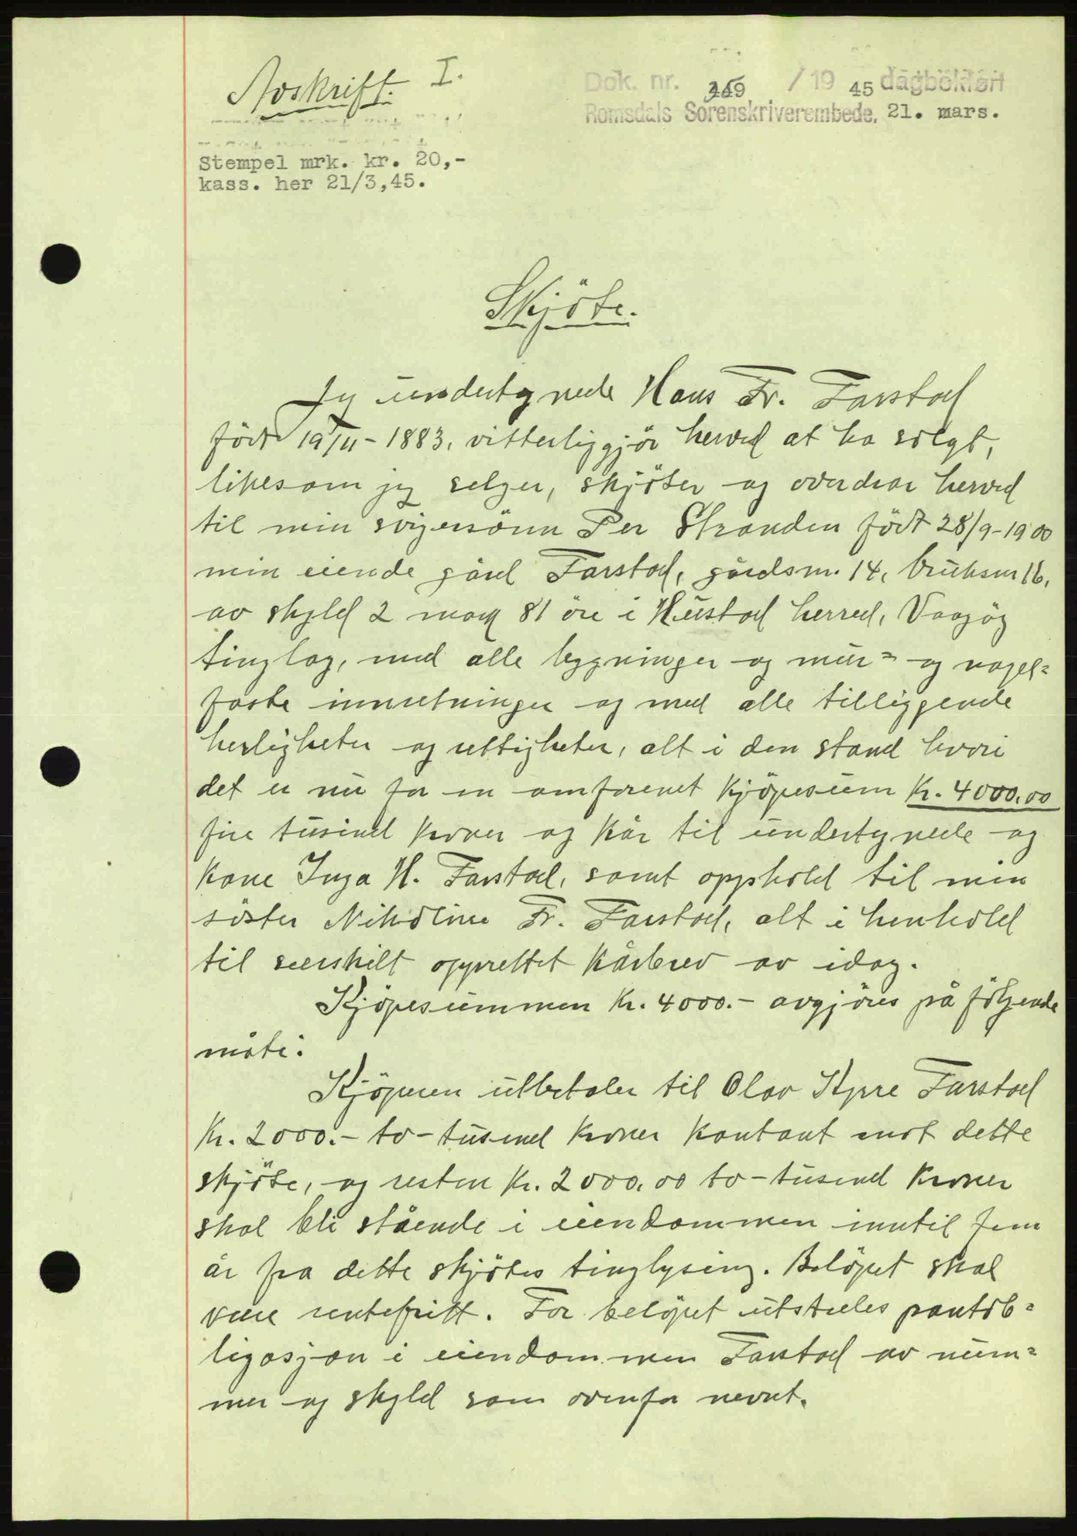 Avskrift. I.
Dok. nr. 449 / 19 45 dagbokført
Romsdals Sorenskriverembede. 21. mars.
Stempel mrk. kr. 20,-
kass. her 21/3,45.
Skjöte.
Jeg undertegnede Hans Fr. Farstad
född 19/11-1883, vitterliggjör herved at ha solgt,
likesom jeg selger, skjöter og overdrar herved
til min svigersönn Per Stranden född 28/9-1900
min eiende gård Farstad, gårdsnr. 14, bruksnr 16,
av skyld 2 mark 81 öre i Hustad herred, Vaagöy
tinglag, med alle bygninger og mur= og nagel=
faste innretninger og med alle tilliggende
herligheter og rettigheter, alt i den stand hvori
det er nu for en omforenet kjöpesum kr. 4000,00
fire tusind kroner og kår til undertegnede og
kone Inga H. Farstad, samt opphold til min
söster Nikoline Fr. Farstad, alt i henhold
til særskilt opprettet kårbrev av idag.
Kjöpesummen kr. 4000.- avgjöres på fölgende
måte:
Kjöperen utbetaler til Olav Kyrre Farstad
kr. 2000.- to-tusend kroner kontant mot dette
skjöte, og resten kr. 2000,00 to-tusend kroner
skal bli stående i eiendommen inntil fem
år fra dette skjötes tinglysing. Belöpet skal
være rentefritt. For belöpet utstedes pantob=
ligasjon i eiendommen Farstad av num=
mer og skyld som ovenfor nevnt.